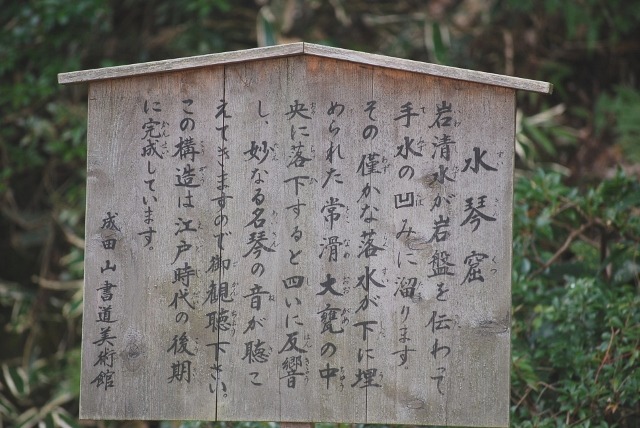 水琴窟
岩清水が岩盤を伝わって
手水の凹みに溜ります。
その僅かな落水が下に埋
められた常滑大甕の中
央に落下すると四いに反響
し、妙なる名琴の音が聴こ
えてきますので御観聴下さい。
この構造は江戸時代の後期
に完成しています。
成田山書道美術館